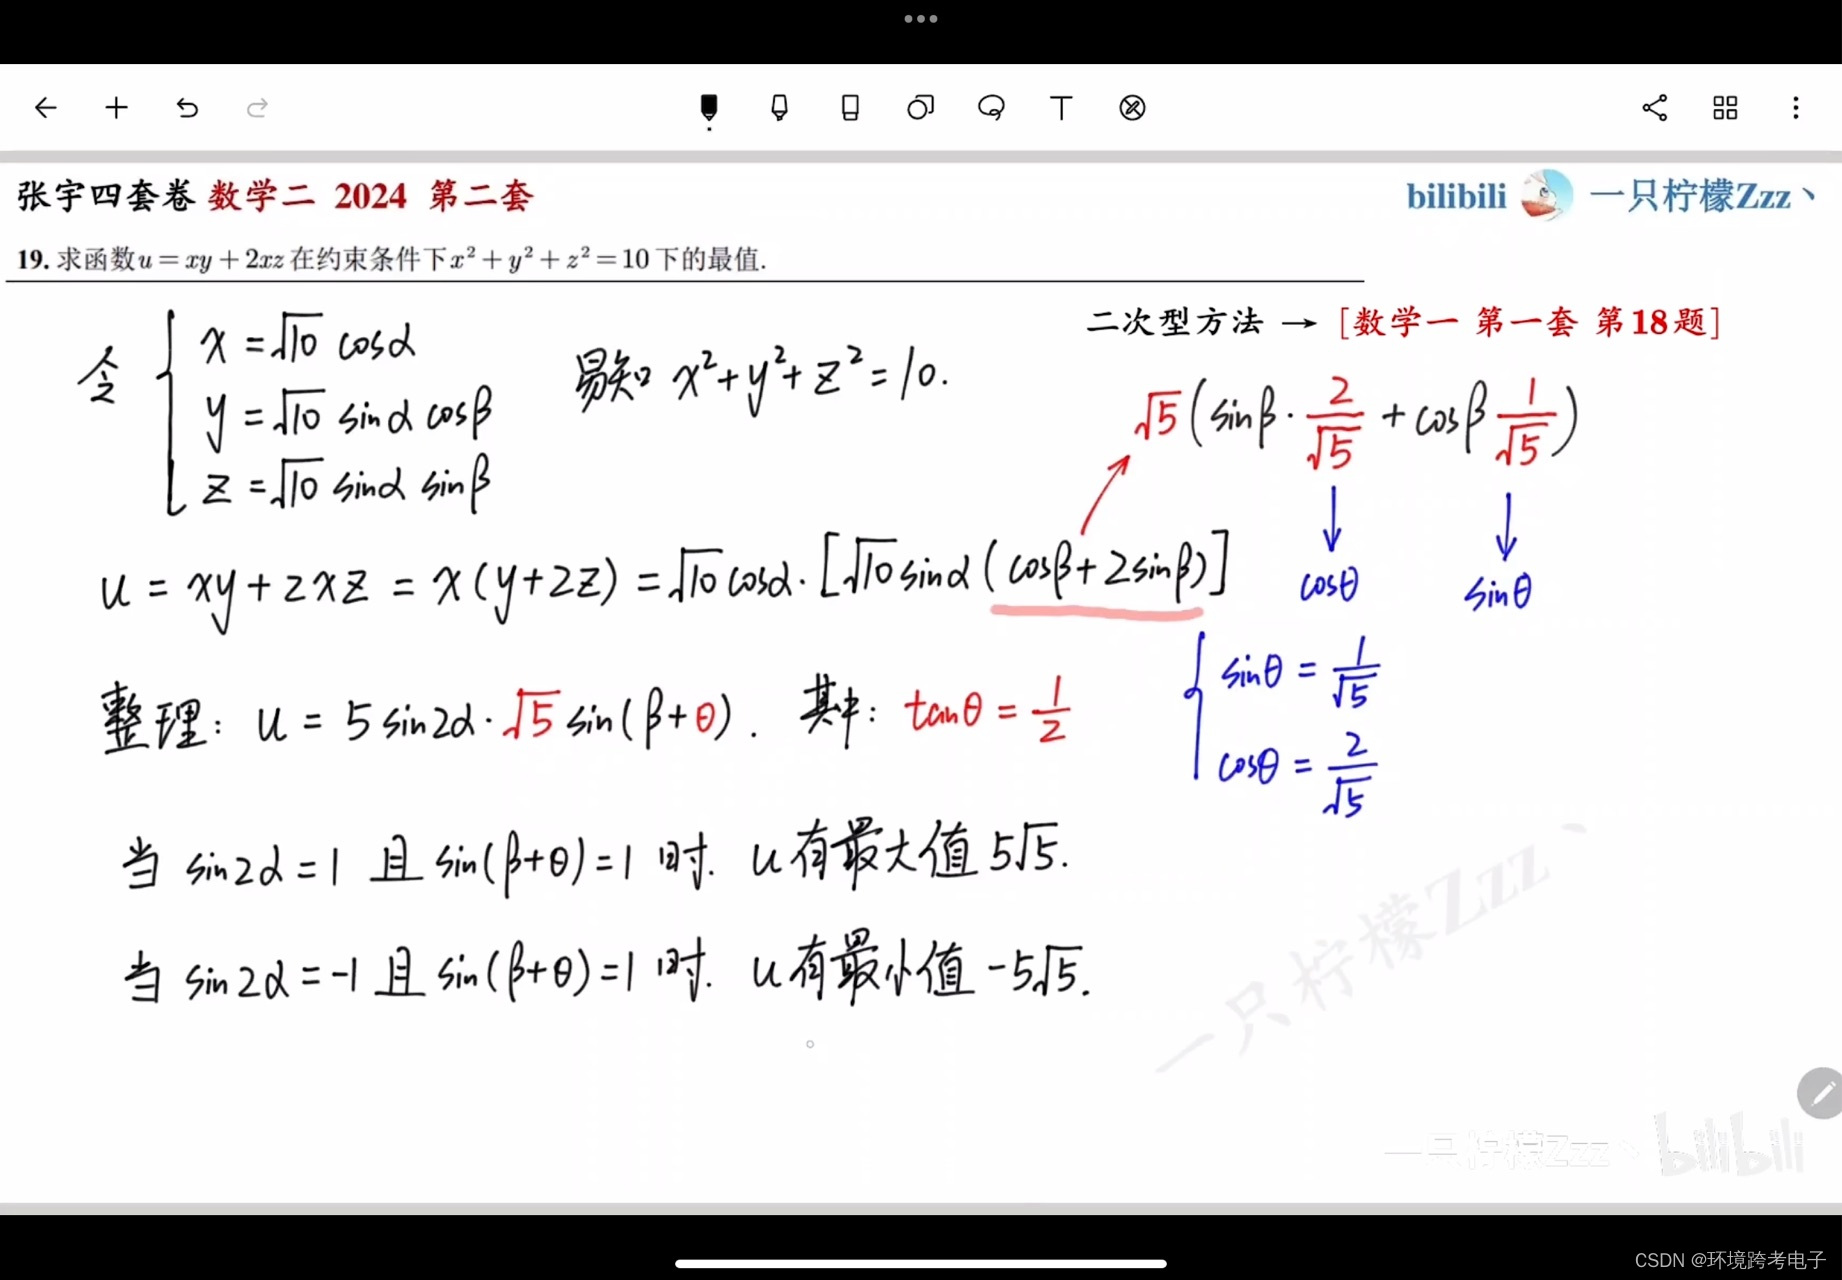 张宇四套卷 数学二 2024 第二套
bilibili 一只柠檬Zzz丶
19. 求函数u=xy+2xz在约束条件下x²+y²+z²=10下的最值.
二次型方法 → [数学一 第一套 第18题]
令 { x=√10 cosα
y=√10 sinα cosβ
z=√10 sinα sinβ
易知 x²+y²+z²=10.
√5(sinβ·2/√5+cosβ 1/√5)
cosθ sinθ
u=xy+2xz=x(y+2z)=√10cosα·[√10sinα(cosβ+2sinβ)]
{ sinθ=1/√5
cosθ=2/√5
整理: u=5sin2α·√5 sin(β+θ). 其中: tanθ=1/2
当 sin2α=1 且 sin(β+θ)=1 时. u有最大值 5√5.
当 sin2α=-1 且 sin(β+θ)=1 时. u有最小值 -5√5.
一只柠檬Zzz丶
一只柠檬Zzz丶 bilibili
CSDN @环境跨考电子
T